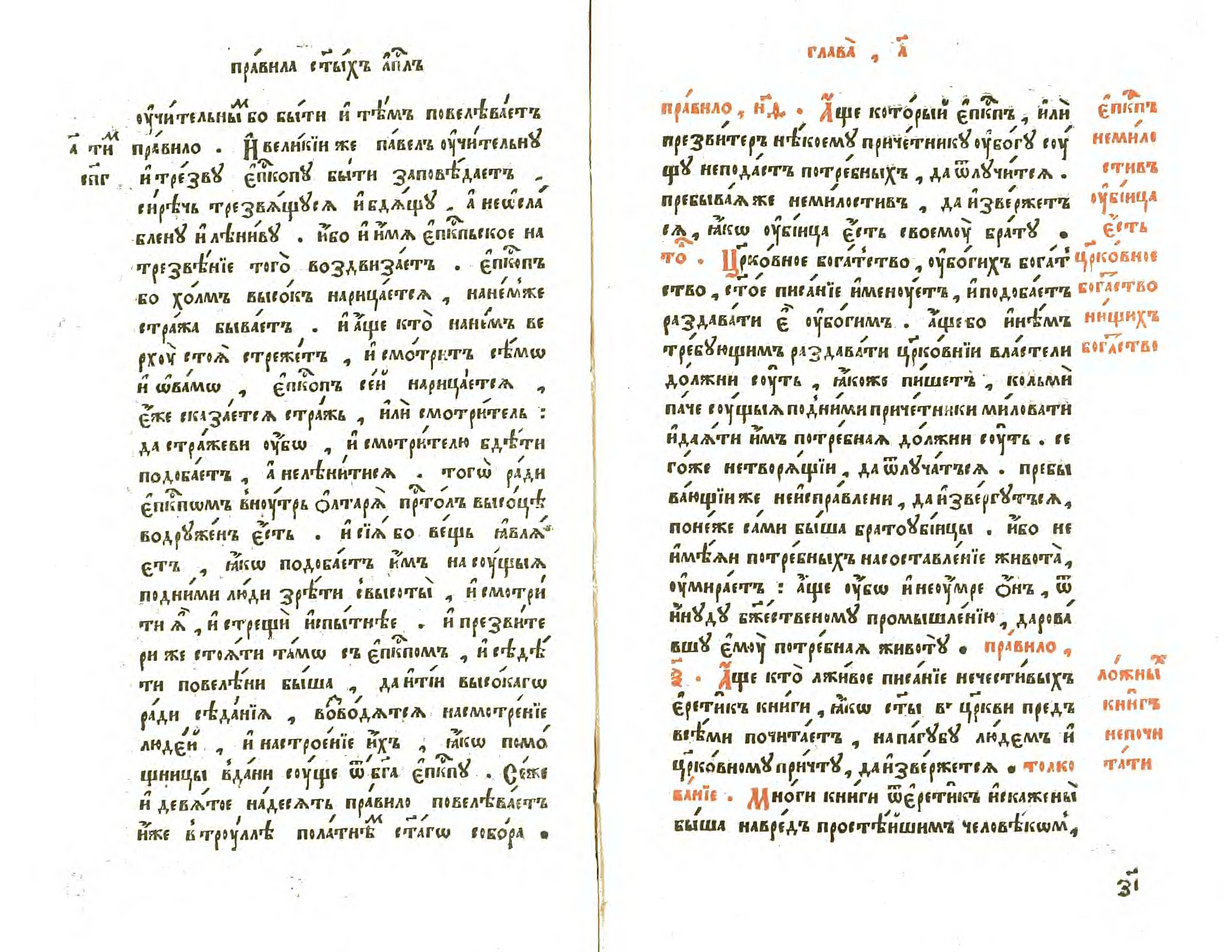 пра́вила ст҃ы́хъ а҆п҃лъ
ᲂу҆чи́тельны́м бо бы́ти и҆ тѣ́мъ повелѣва́етъ
а҃ ти́м
пра́вило . И҆вели́кїи же па́велъ ᲂу҆чи́тельну
сп҃г
и҆тре́зву є҆п҃копу бы́ти заповѣ́даетъ ,
си́рѣчь трезвѧ́щусѧ и҆бдѧ́щу , а҆ неѡ҆сла́
блену и҆лѣни́ву . и҆́бо и҆ и҆́мѧ є҆п҃кпьское на
трезвѣ́нїе того̀ воздвиза́етъ . є҆п҃копъ
бо хо́лмъ высо́къ нарица́етсѧ , нане́мже
стра́жа быва́етъ . и҆ а҆́ще кто̀ нане́мъ ве
рхꙋ̀ стоѧ̀ стреже́тъ , и҆ смо́тритъ сѣ́мѡ
и҆ ѡ҆ва́мѡ , є҆п҃копъ се́й нарица́етсѧ ,
є҆́же сказа́етсѧ стра́жь , и҆лѝ смотри́тель :
да стра́жеви ᲂу҆́бѡ , и҆ смотри́телю бдѣ́ти
подоба́етъ , а҆ нелѣни́тисѧ . тогѡ̀ ра́ди
є҆п҃кпѡмъ внᲂу́трь ѻ҆лтарѧ̀ прⷭ҇то́лъ высо́цѣ
водруже́нъ є҆́сть . и҆ сїѧ̀ бо ве́щь ꙗ҆влѧ́
етъ , ꙗ҆́кѡ подоба́етъ и҆̀мъ насᲂу́щыѧ
подни́ми лю́ди зрѣ́ти свысоты̀ , и҆ смотри́
ти ѧ҆̀ , и҆ стрещѝ и҆спы́тнѣе . и҆ презвите
ри же стоѧ́ти та́мѡ съ є҆п҃кпомъ , и҆ сѣдѣ́
ти повелѣ́ни бы́ша , даи҆ті́и высо́кагѡ
ра́ди сѣда́нїѧ , вово́дѧтсѧ насмотре́нїе
люде́й , и҆ настрое́нїе и҆́хъ , ꙗ҆́кѡ помо́
щницы вда́ни сᲂу́ще ѿ бг҃а є҆п҃кпу . Се́же
и҆ девѧ́тое на́десѧть пра́вило повелѣва́етъ
и҆́же втрᲂу́ллѣ пола́тнѣ́м ст҃а́гѡ собо́ра .
глава̀ , а҃
пра́вило , н҃д . А҆́ще кото́рый є҆п҃кпъ , и҆лѝ
презви́теръ нѣ́коему приче́тнику ᲂу҆бо́гу сᲂу́
щу непода́стъ потре́бныхъ , да ѿлучи́тсѧ .
пребыва́ѧже неми́лостивъ , да и҆зве́ржетъ
сѧ , ꙗ҆́кѡ ᲂу҆бі́ица є҆́сть своемᲂу̀ бра́ту .
то҃ . Цр҃ко́вное бога́тество , ᲂу҆бо́гихъ бога́т
ство , ст҃о́е писа́нїе и҆менᲂу́етъ , и҆подоба́етъ
раздава́ти є҆̀ ᲂу҆бо́гимъ . а҆́ще бо и҆нѣ́мъ
тре́бующимъ раздава́ти цр҃ко́внїи власте́ли
до́лжни сᲂу́ть , ꙗ҆́коже пи́шетъ , кольмѝ
па́че сᲂу́щыѧ подни́ми приче́тники ми́ловати
и҆даѧ́ти и҆̀мъ потре́бнаѧ до́лжни сᲂу́ть . се
го́же нетворѧ́щїи , да ѿлуча́тъсѧ . пребы
ва́ющїи же неи҆спра́влени , да и҆зве́ргутъсѧ ,
поне́же са́ми бы́ша братоᲂубі́ицы . и҆́бо не
и҆мѣ́ѧи потре́бныхъ насоставле́нїе живота̀ ,
ᲂу҆мира́етъ : а҆́ще ᲂу҆́бѡ и҆ неᲂу́мре ѻ҆́нъ , ѿ
и҆ну́ду бж҃е́ственому промышле́нїю , дарова́
вшу є҆мᲂу̀ потре́бнаѧ животу̀ . пра́вило ,
ѯ҃ . А҆́ще кто̀ лжи́вое писа́нїе нечести́выхъ
є҆рети́къ кни́ги , ꙗ҆́кѡ ст҃ы в' цр҃кви предъ
всѣ́ми почита́етъ , напа́губу лю́демъ и҆
цр҃ко́вному при́чту , да и҆зве́ржетсѧ . толко
ва́нїе . Мно́ги кни́ги ѿ є҆рети́къ и҆скаже́ны
бы́ша навре́дъ простѣ́йшимъ человѣ́кѡм ,
є҆п҃кпъ
неми́ло
стивъ
ᲂу҆бі́ица
є҆́сть
цр҃ко́вное
бога́ство
ни́щихъ
бога́тство
ло́жныⷯ
кни́гъ
непочи
та́ти
з҃і